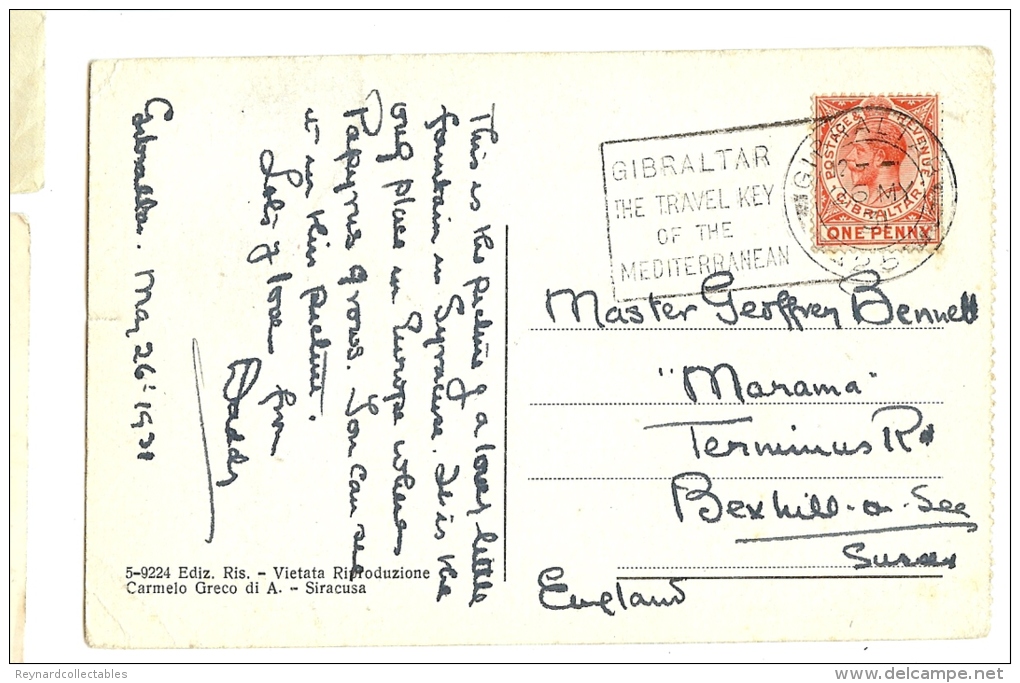 Gibraltar. May 26th 1931
This is the picture of a lovely little
fountain in Syracuse. It is the
only place in Europe where
Papyrus grows. You can see
it in this picture.
Lots of love from
Daddy
5-9224 Ediz. Ris. - Vietata Riproduzione
Carmelo Greco di A. - Siracusa
GIBRALTAR
THE TRAVEL KEY
OF THE
MEDITERRANEAN
GIBRALTAR
POSTAGE & REVENUE
GIBRALTAR
ONE PENNY
Master Geoffrey Bennett
"Marama"
Terminus Rd
Bexhill-on-Sea
Sussex
England
Reynardcollectables
www.delcampe.net